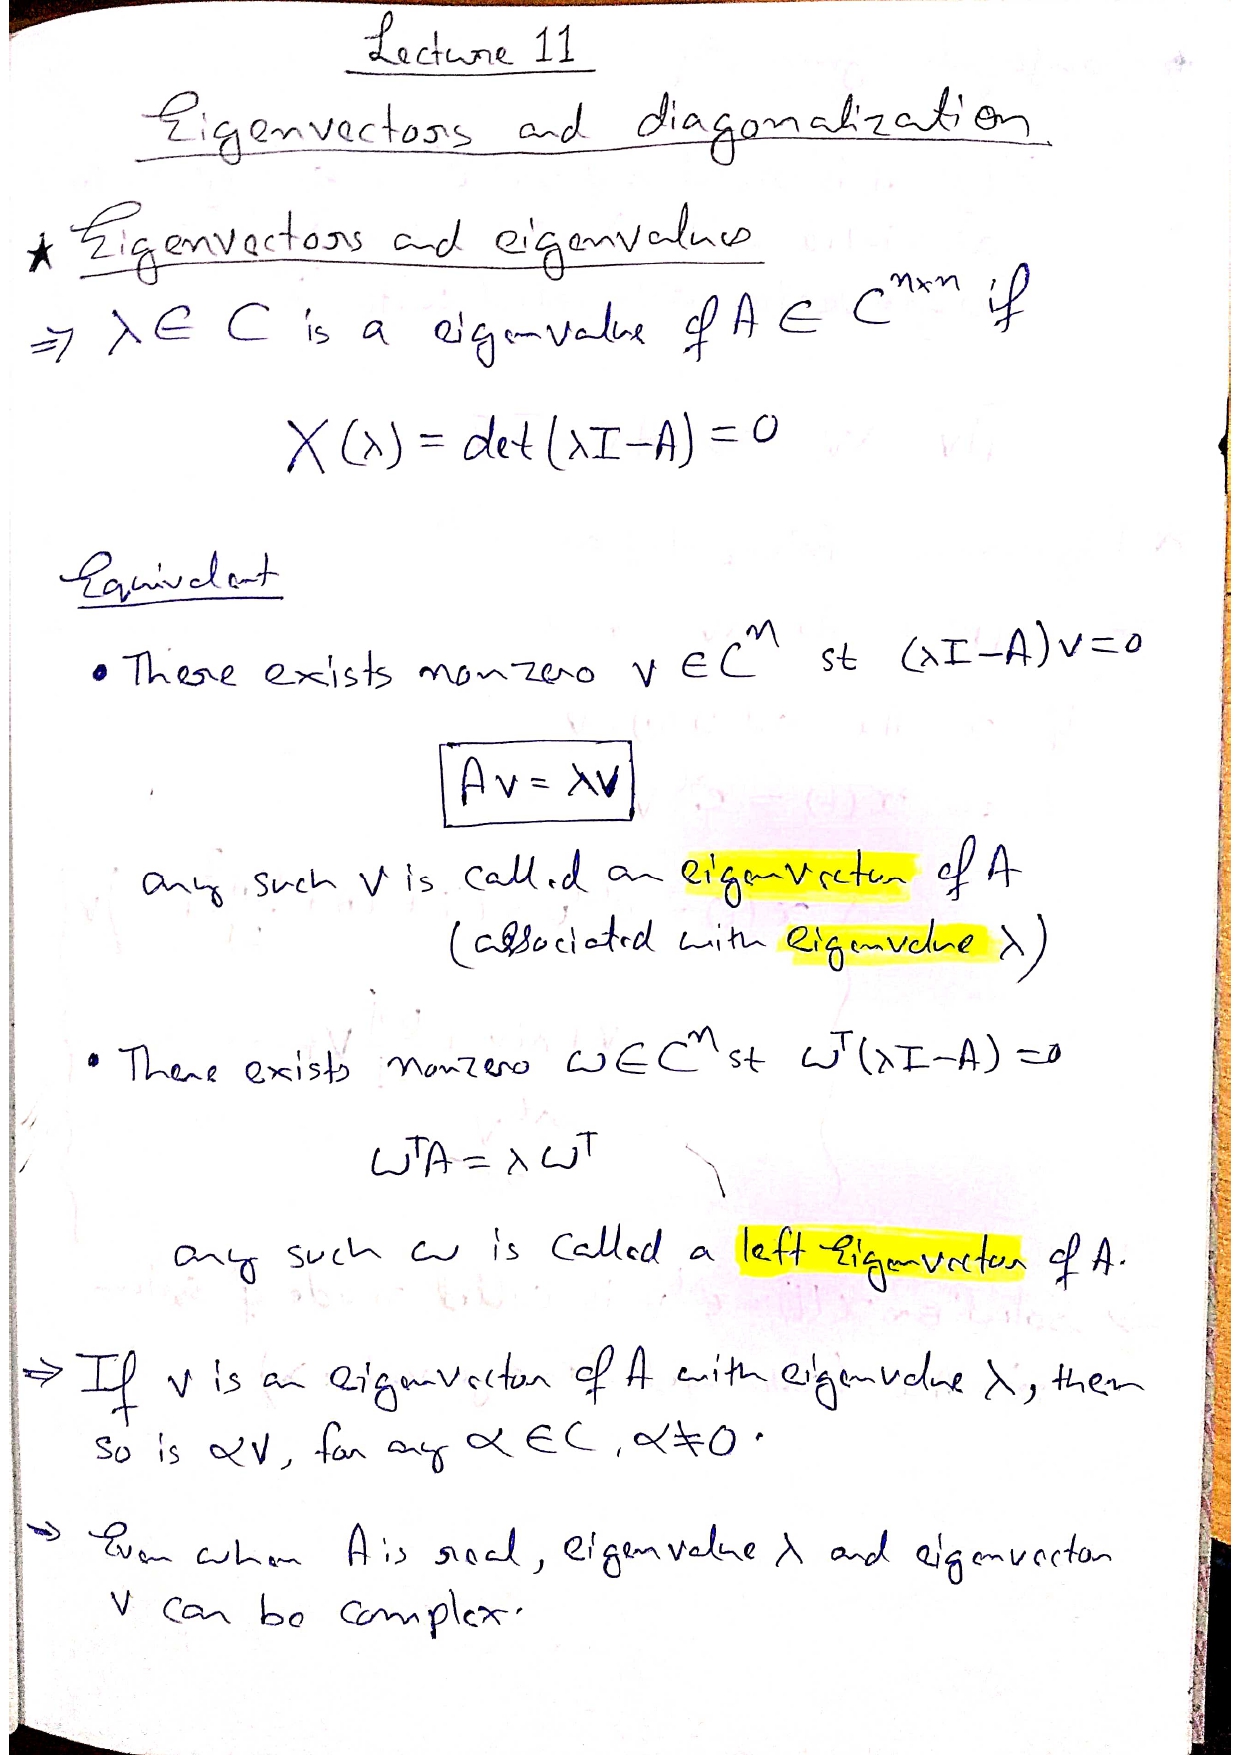 Lecture 11
Eigenvectors and diagonalization
★ Eigenvectors and eigenvalues
⇒ λ ∈ C is a eigenvalue of A ∈ Cⁿˣⁿ if
X(λ) = det(λI-A) = 0
Equivalent
• There exists nonzero v ∈ Cⁿ st (λI-A)v=0
Av = λv
any such v is called an eigenvector of A
(associated with eigenvalue λ)
• There exists nonzero ω ∈ Cⁿ st ωᵀ(λI-A) = 0
ωᵀA = λωᵀ
any such ω is called a left Eigenvector of A.
⇒ If v is an eigenvector of A with eigenvalue λ, then
so is αv, for any α ∈ C, α≠0.
⇒ Even when A is real, eigenvalue λ and eigenvector
v can be complex.